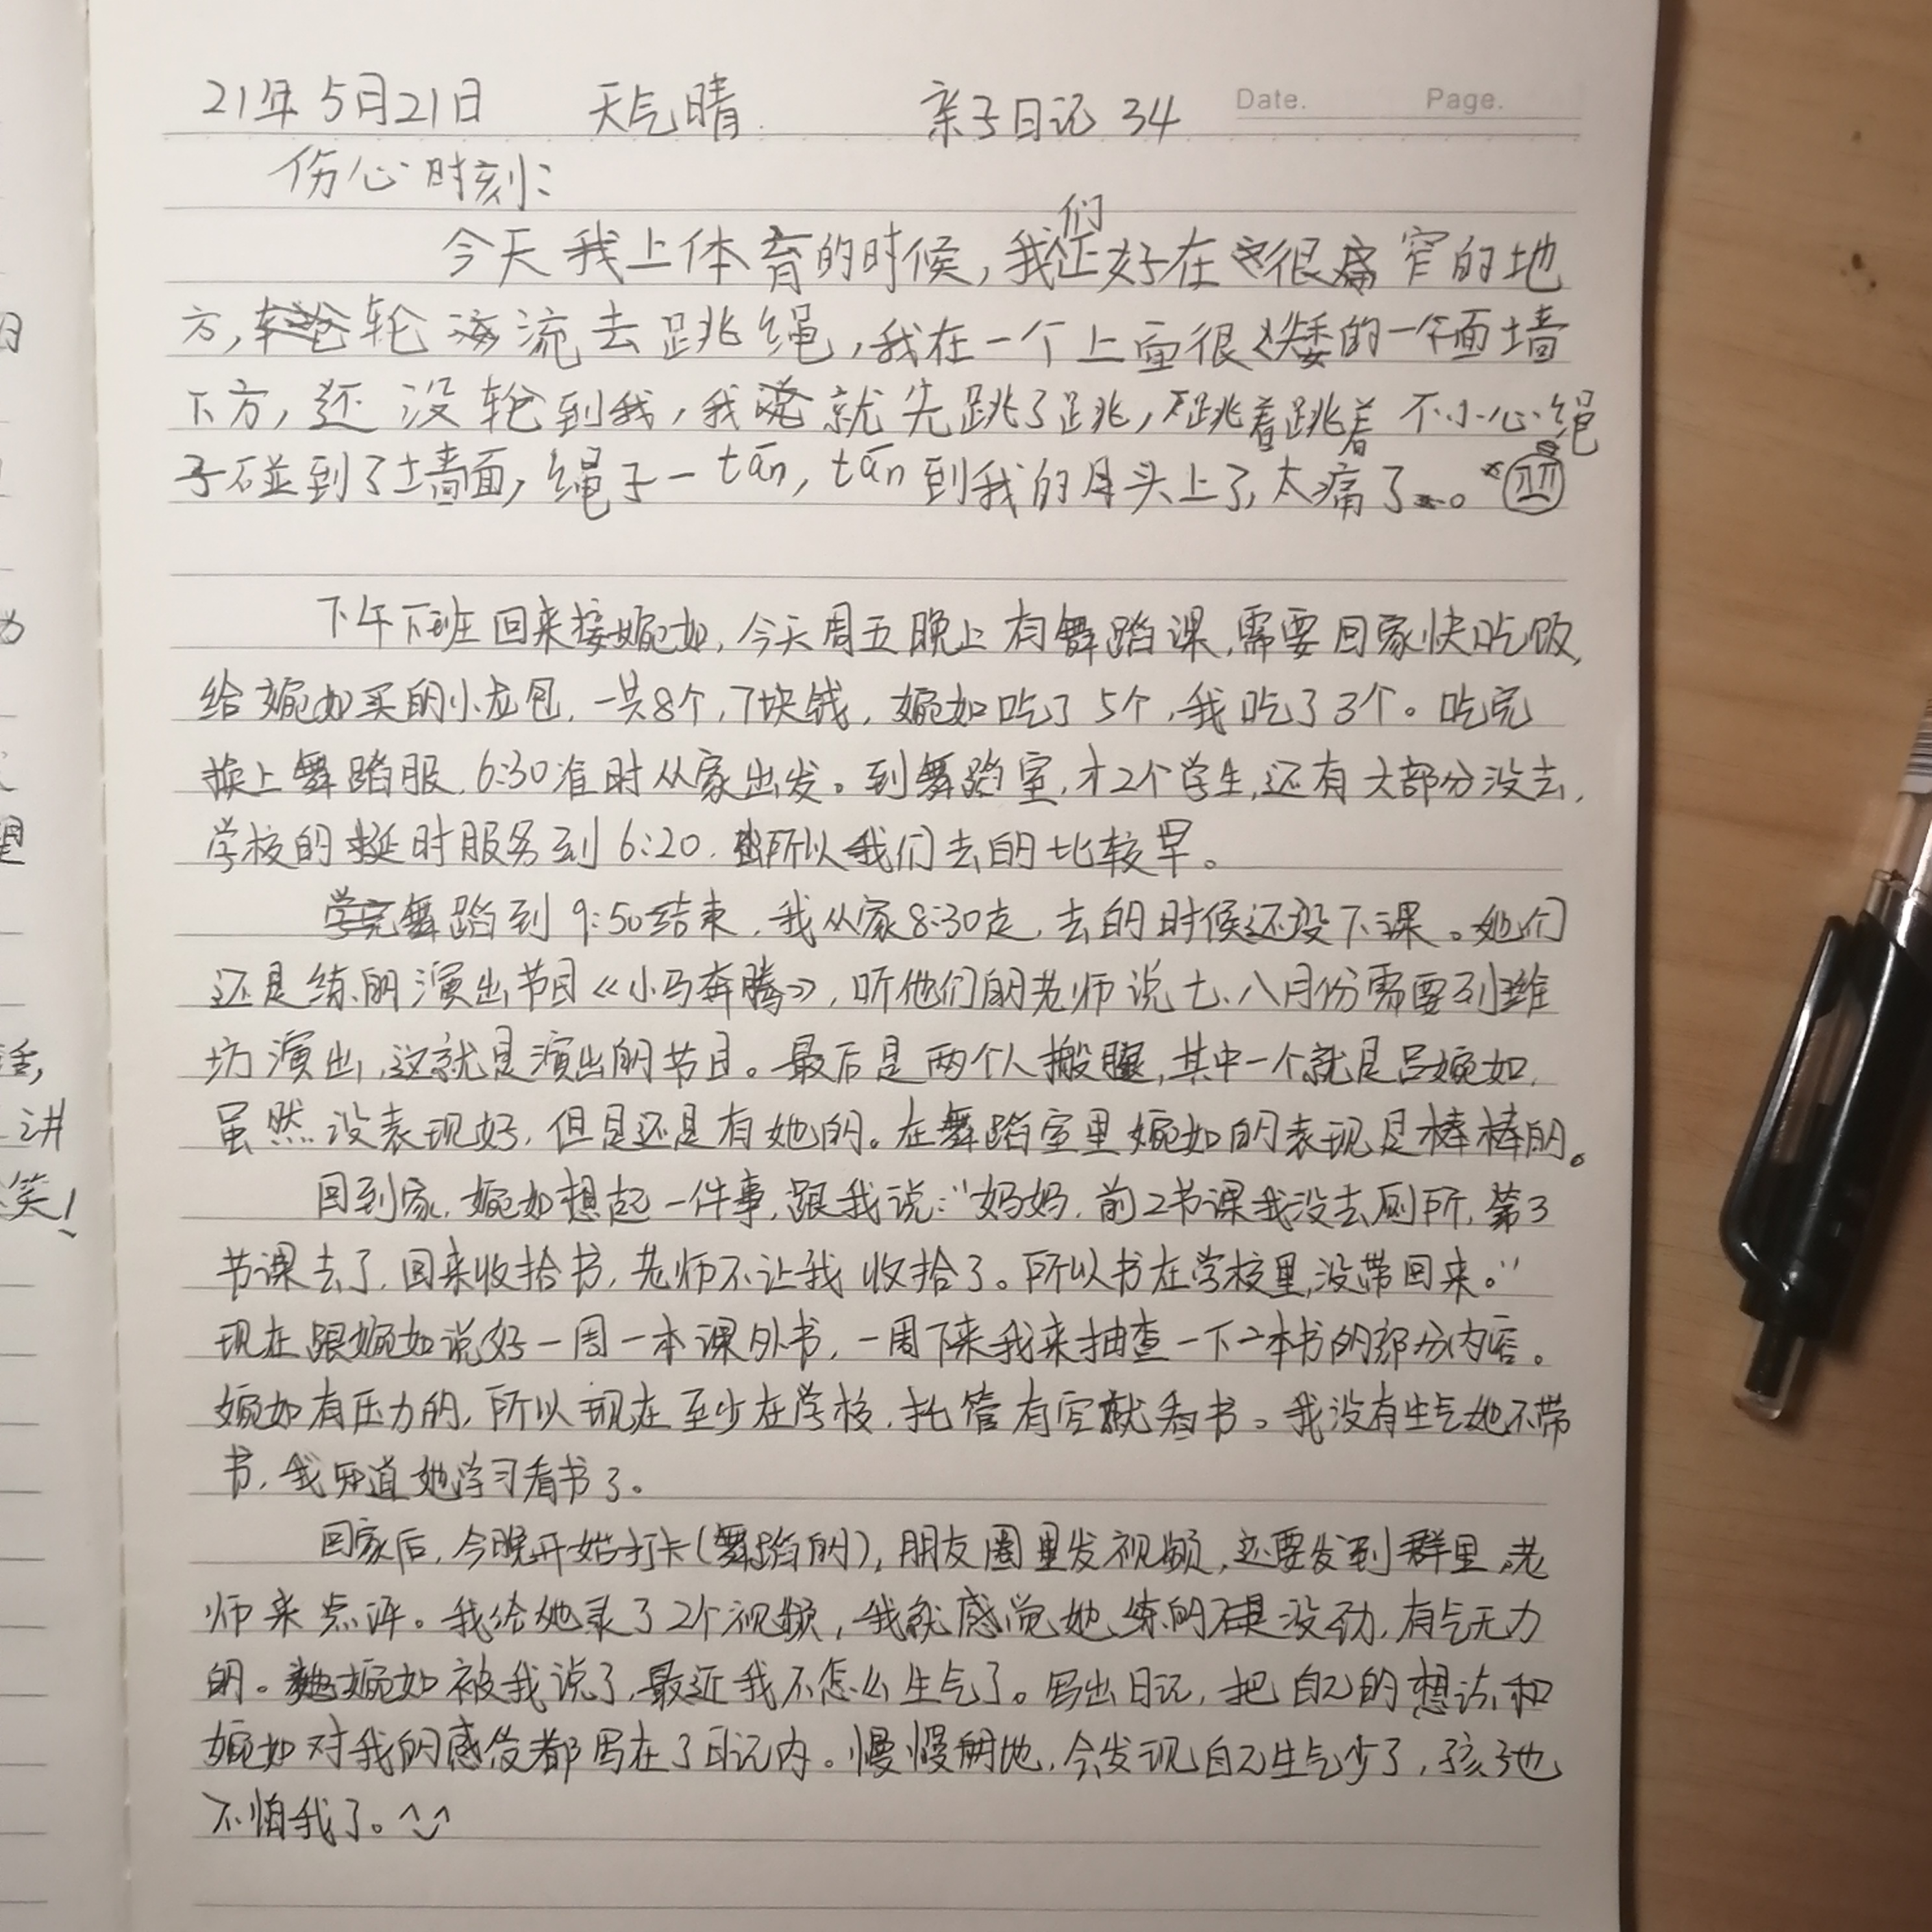 21年5月21日 天气晴 亲子日记 34
Date. Page.
伤心时刻:
今天我上体育的时候,我们正好在很窄的地
方,轮流去跳绳,我在一个上面很矮的一个面墙
下方,还没轮到我,我就先跳了跳,跳着跳着不小心绳
子碰到了墙面,绳子一tán,tán到我的头上了,太痛了。
下午下班回来接婉如,今天周五晚上有舞蹈课,需要回家快吃饭,
给婉如买的小龙包,一共8个,7块钱,婉如吃了5个,我吃了3个。吃完
换上舞蹈服,6:30准时从家出发。到舞蹈室,才2个学生,还有大部分没去,
学校的延时服务到6:20,所以我们去的比较早。
舞蹈到9:50结束,我从家8:30走,去的时候还没下课。她们
还是练的演出节目《小马奔腾》,听他们的老师说七、八月份需要到潍
坊演出,这就是演出的节目。最后是两个人搬腿,其中一个就是吕婉如,
虽然没表现好,但是还是有她的。在舞蹈室里婉如的表现是棒棒的。
回到家,婉如想起一件事,跟我说:“妈妈,前2节课我没去厕所,第3
节课去了,回来收拾书,老师不让我收拾了。所以书在学校里,没带回来。”
现在跟婉如说好一周一本课外书,一周下来我来抽查一下一本书的部分内容。
婉如有压力的,所以现在至少在学校,托管有空就看书。我没有生气她不带
书,我知道她学习看书了。
回家后,今晚开始打卡(舞蹈的),朋友圈里发视频,还要发到群里,老
师来点评。我给她录了2个视频,我就感觉她练的不是没劲,有气无力
的。婉如被我说了,最近我不怎么生气了。写出日记,把自己的想法和
婉如对我的感受都写在了日记内。慢慢的地,会发现自己生气少了,孩子也
不怕我了。^◡^